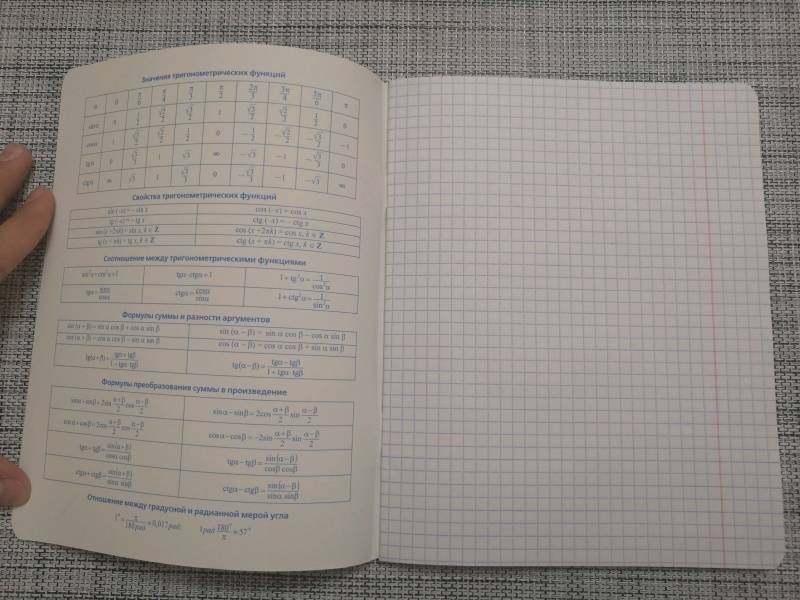 Значения тригонометрических функций
α 0 π/6 π/4 π/3 π/2 2π/3 3π/4 5π/6 π
sinα 0 1/2 √2/2 √3/2 1 √3/2 √2/2 1/2 0
cosα 1 √3/2 √2/2 1/2 0 −1/2 −√2/2 −√3/2 −1
tgα 0 √3/3 1 √3 ∞ −√3 −1 −√3/3 0
ctgα ∞ √3 1 √3/3 0 −√3/3 −1 −√3 ∞
Свойства тригонометрических функций
sin (−x) = − sin x cos (−x) = cos x
tg (−x) = − tg x ctg (−x) = − ctg x
sin(x +2πk) = sin x, k ∈ Z cos (x +2πk) = cos x, k ∈ Z
tg (x + πk) = tg x, k ∈ Z ctg (x + πk) = ctg x, k ∈ Z
Соотношение между тригонометрическими функциями
sin²α+cos²α=1 tgα·ctgα=1 1 + tg²α = 1/cos²α
tgα = sinα/cosα ctgα = cosα/sinα 1 + ctg²α = 1/sin²α
Формулы суммы и разности аргументов
sin (α + β) = sin α cos β + cos α sin β sin (α − β) = sin α cos β − cos α sin β
cos (α + β) = cos α cos β − sin α sin β cos (α − β) = cos α cos β + sin α sin β
tg(α+β) = tgα+tgβ/1−tgα·tgβ tg(α−β) = tgα−tgβ/1+tgα·tgβ
Формулы преобразования суммы в произведение
sinα+sinβ=2sin α+β/2 cos α−β/2 sinα−sinβ = 2cos α+β/2 sin α−β/2
cosα+cosβ=2cos α+β/2 cos α−β/2 cosα−cosβ = −2sin α+β/2 sin α−β/2
tgα+tgβ = sin(α+β)/cosα cosβ tgα−tgβ = sin(α−β)/cosβ cosβ
ctgα+ctgβ = sin(α+β)/sinα sinβ ctgα−ctgβ = sin(α−β)/sinα sinβ
Отношение между градусной и радианной мерой угла
1° = π/180 рад ≈ 0,017 рад; 1 рад 180°/π ≈ 57°